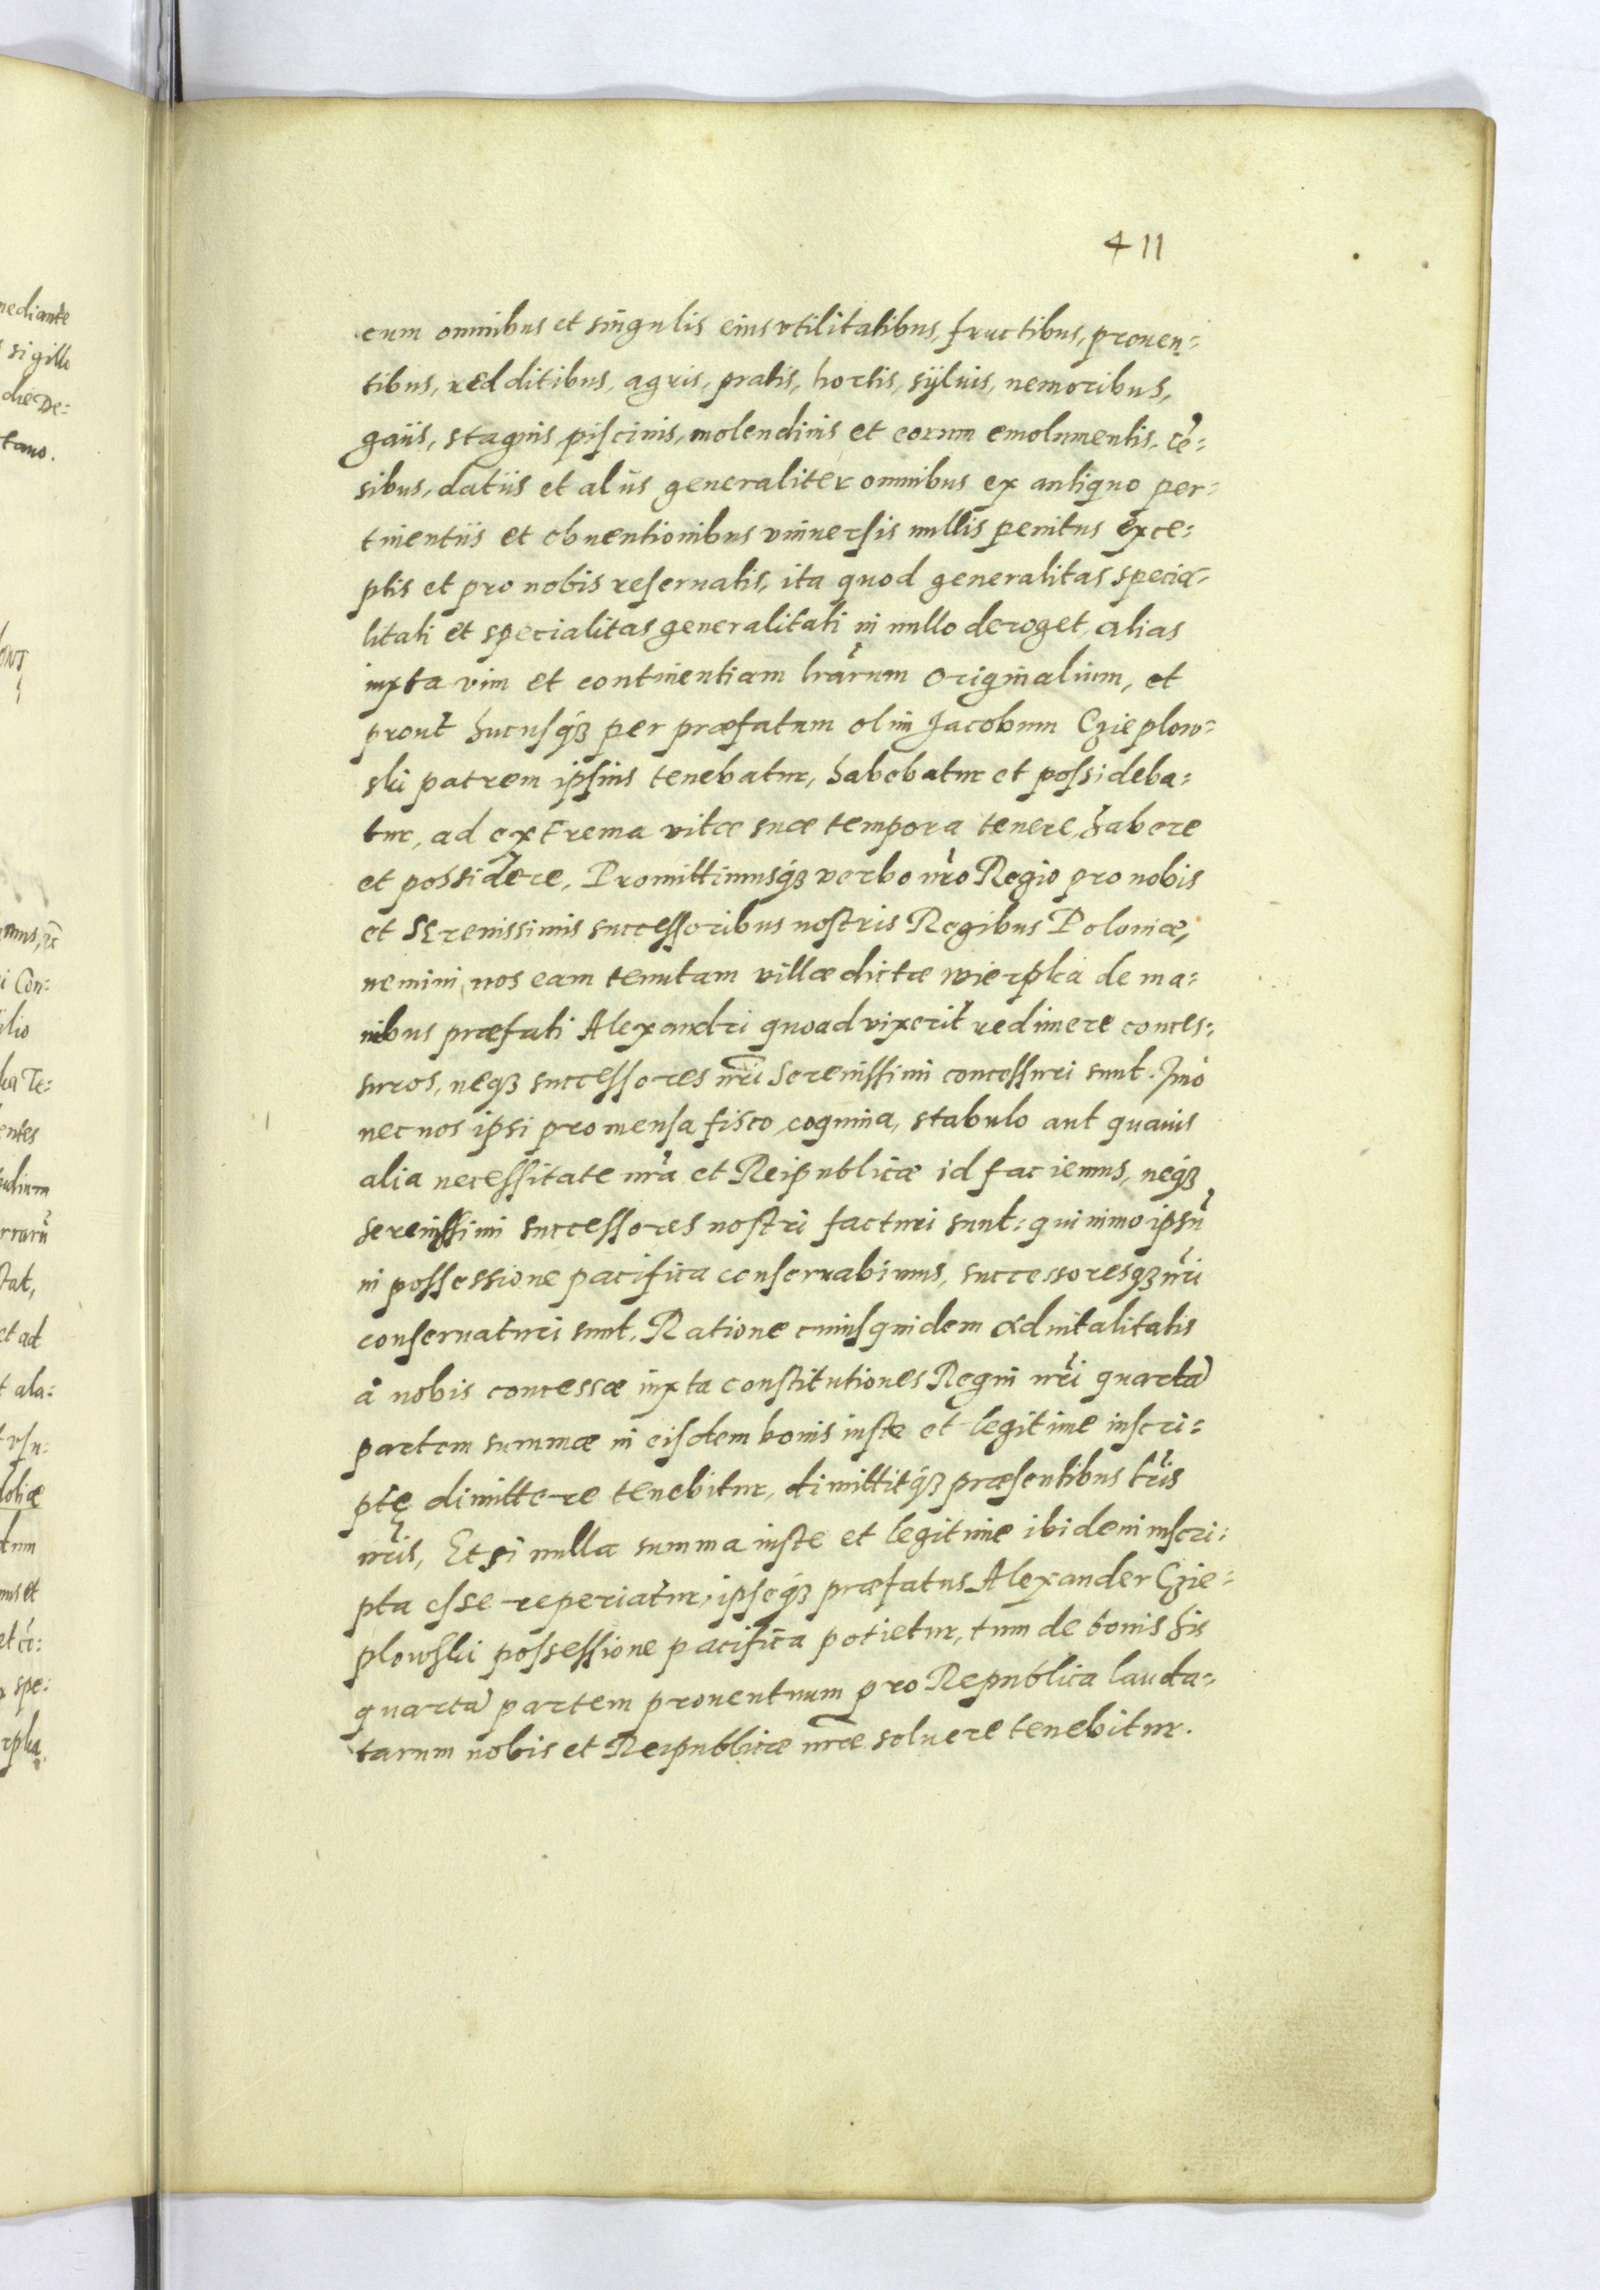 mediante
sigillo
die De:
tano.
411
cum omnibus et singulis eius vtilitatibus, fructibus, prouen:
tibus, redditibus, agris, pratis, hortis, sÿluis, nemoribus,
gaiis, stagnis, piscinis, molendinis et eorum emolumentis, cẽ:
sibus, datiis et aliis generaliter omnibus ex antiquo per:
tinentiis et obuentionibus vniuersis nullis penitus exce:
ptis et pro nobis reseruatis, ita quod generalitas specia:
litati et specialitas generalitati in nullo deroget, alias
iuxta vim et continentiam lrãrum Originalium, et
prout hucusq́ꝫ per præfatum olim Jacobum Czieplow:
ski patrem ipsius tenebatur, habebatur et possideba:
tur, ad extrema vitæ suæ tempora tenere, habere
et possidere. Promittimusq́ꝫ verbo nr̃o Regio pro nobis
et Serenissimis successoribus nostris Regibus Poloniæ,
nemini nos eam tenutam villæ dictæ wierpka de ma:
nibus præfati Alexandri quoad vixerit redimere conces:
suros, neqꝫ successores nr̃i Serenissimi concessuri sunt. Imò
nec nos ipsi pro mensa fisco, coquina, stabulo aut quauis
alia necessitate nr̃a et Reipublicæ id faciemus, neq́ꝫ
serenissimi successores nostri facturi sunt: quinimo ipsũ
in possessione pacifica conseruabimus, successoresqꝫ nr̃i
conseruaturi sunt. Ratione cuiusquidem aduitalitatis
à nobis concessæ iuxta constitutiones Regni nr̃i quartã
partem summæ in eisdem bonis iuste et legitime inscri:
ptę dimittere tenebitur, dimittitq́ꝫ præsentibus lr̃is
nr̃is, Et si nulla summa iuste et legitime ibidem inscri:
pta esse reperiatur, ipseq́ꝫ præfatus Alexander Czie:
plowski possessione pacifica potietur, tum de bonis his
quartã partem prouentuum pro Republica lauda:
tarum nobis et Reipublicæ nr̃æ soluere tenebitur.